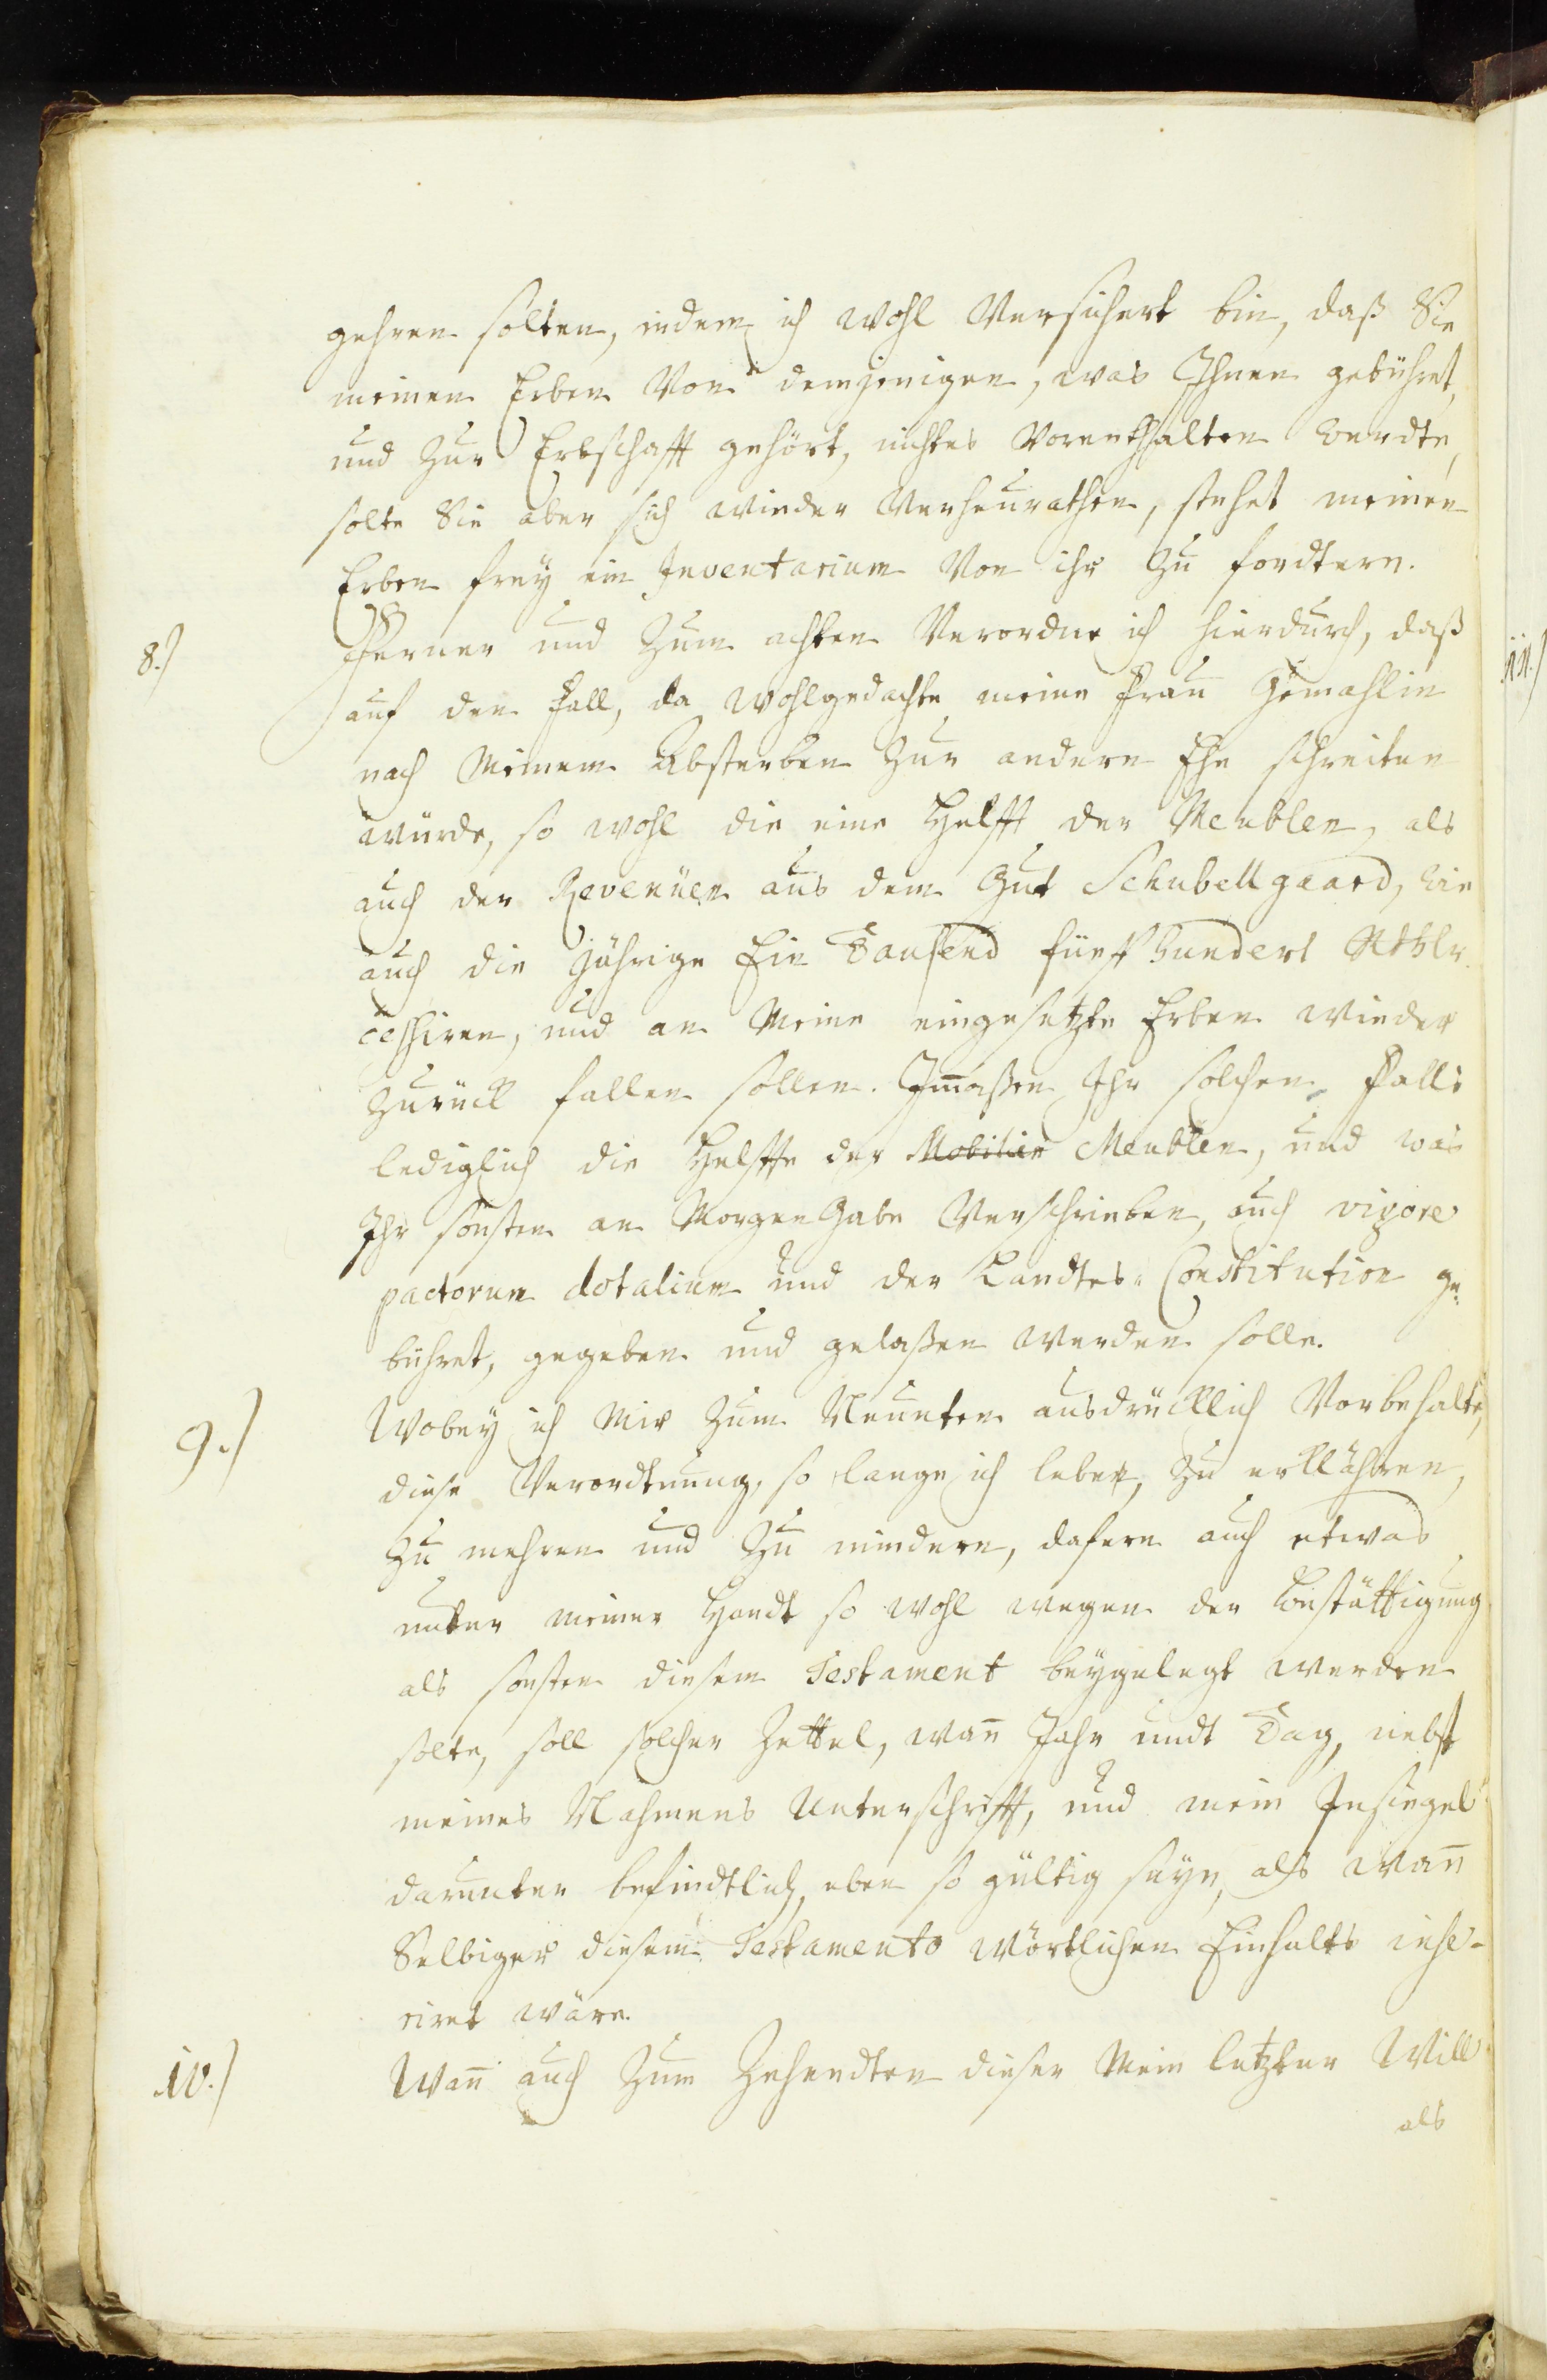 gehren solten, indem ich wohl Versichert bin, daß Sie
meinen Erben Von demjenigen, was Ihnen gebühret,
und Zur Erbschafft gehört, nichtes Vorenthalten werdte,
solte Sie aber sich wieder Verheurathen, stehet meinen
Erben frey ein Inventarium Von ihr Zu fordtern.
8.) Ferner und Zum achten Verordne ich hierdurch, daß
auf den Fall, da wohlgedachte meine Frau Gemahlin
nach Meinem Absterben Zur andern Ehe schreiten
würde, so wohl die eine Helfft der Meublen, als
auch der Revenüen aus dem Gut Schubellgaard, wie
auch die jährige Ein Tausend fünff hundert Rthlr.
cessiren, und an Meine eingesetzte Erben wieder
Zurück fallen sollen. Im̄aßen Ihr solchen Falls
lediglich die Helffte der Mobilien Meublen, und was
Ihr sonsten an Morgen Gabe Verschrieben, auch vigore
pactorum dotalium und der Landtes-Constitution ge-
bühret, gegeben und gelaßen werden solle.
9.) Wobey ich Mir Zum Neunten ausdrücklich Vorbehalte,
diese Verordtnung, so lange ich leben, Zu erklähren,
Zu mehren und Zu mindern, dafern auch etwas
unter meiner Handt so wohl wegen der Bestättigung
als sonsten diesem Testament beygelegt werden
solte, soll solcher Zettel, wan̄ Jahr undt Tag, nebst
meines Nahmens Unterschrifft, und mein Insiegel
darunter befindtlich, eben so gültig seyn, alß wan̄
Selbiger diesem Testamento wörtlichen Einhalts inse-
riret wäre.
10.) Wan̄ auch Zum Zehendten dieser Mein letzter Will
als
11.)